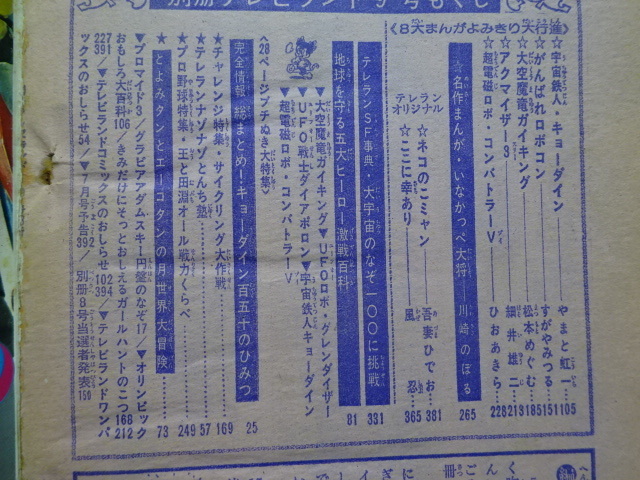 別冊テレビランド9号もくじ
《8大まんがよみきり大行進》
☆宇宙鉄人・キョーダイン やまと虹一 105
☆がんばれロボコン すがやみつる 151
☆大空魔竜ガイキング 松本めぐむ 185
☆アクマイザー3 細井雄二 213
☆超電磁ロボ・コンバトラーV ひおあきら 228
☆名作まんが・いなかっぺ大将 川崎のぼる 265
テレランオリジナル
☆ネコのこミャン 吾妻ひでお 381
☆ここに幸あり 風忍 365
テレランSF事典・大宇宙のなぞ一〇〇に挑戦 331
地球を守る五大ヒーロー激戦百科 81
▼大空魔竜ガイキング▼UFOロボ・グレンダイザー
▼UFO戦士ダイアポロン▼宇宙鉄人キョーダイン
▼超電磁ロボ・コンバトラーV
《28ページブチぬき大特集》
完全情報 総まとめ!キョーダイン百五十のひみつ 25
★チャレンジ特集・サイクリング大作戦 169
★テレランナゾナゾとんち塾 57
★プロ野球特集・王と田淵オール戦力くらべ 249
★とよみタンとエーコタンの月世界大冒険 73
▼ブロマイド3/グラビアアダムスキー円盤のなぞ17/▼オリンピック
おもしろ大百科106/きみだけにそっとおしえるガールハントのこつ168 212
227 391/▼テレビランドコミックスのおしらせ102 394/▼テレビランドワンパ
ックスのおしらせ54/▼7月号予告392/別冊8号当選者発表150